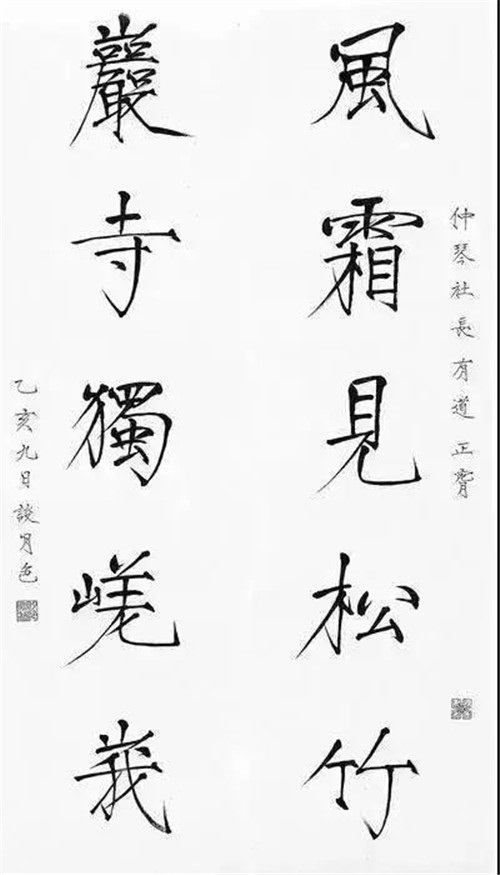 仲琴社長有道正
風霜見松竹
巖寺獨嵯峩
乙亥九日談月色